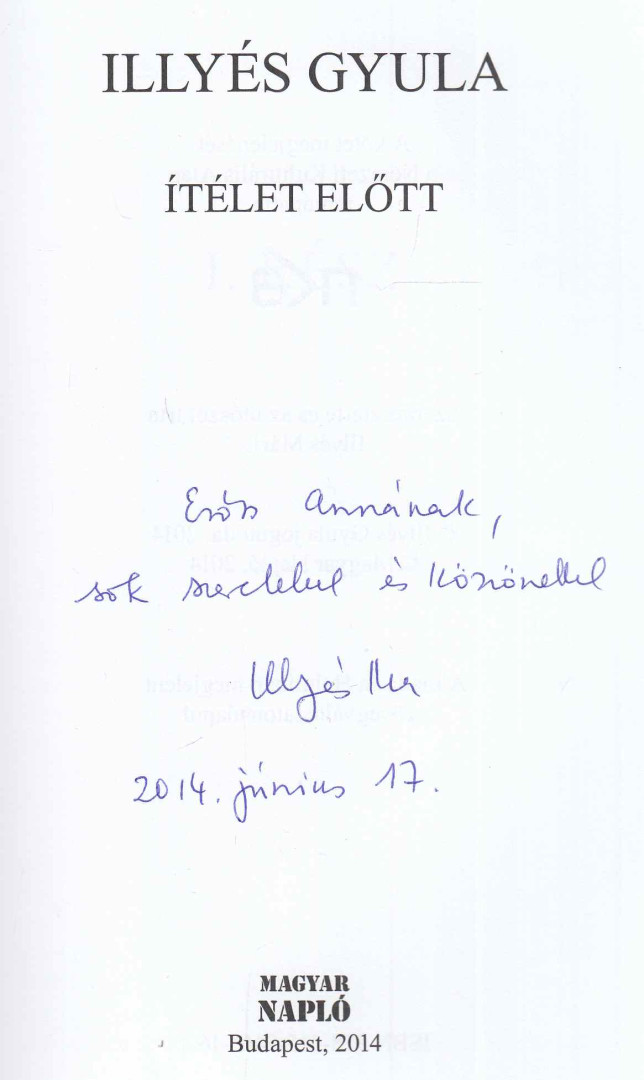 ILLYÉS GYULA
ÍTÉLET ELŐTT
Annának,
sok szeretettel és köszönettel
Illyés
2014. június 17.
MAGYAR
NAPLÓ
Budapest, 2014